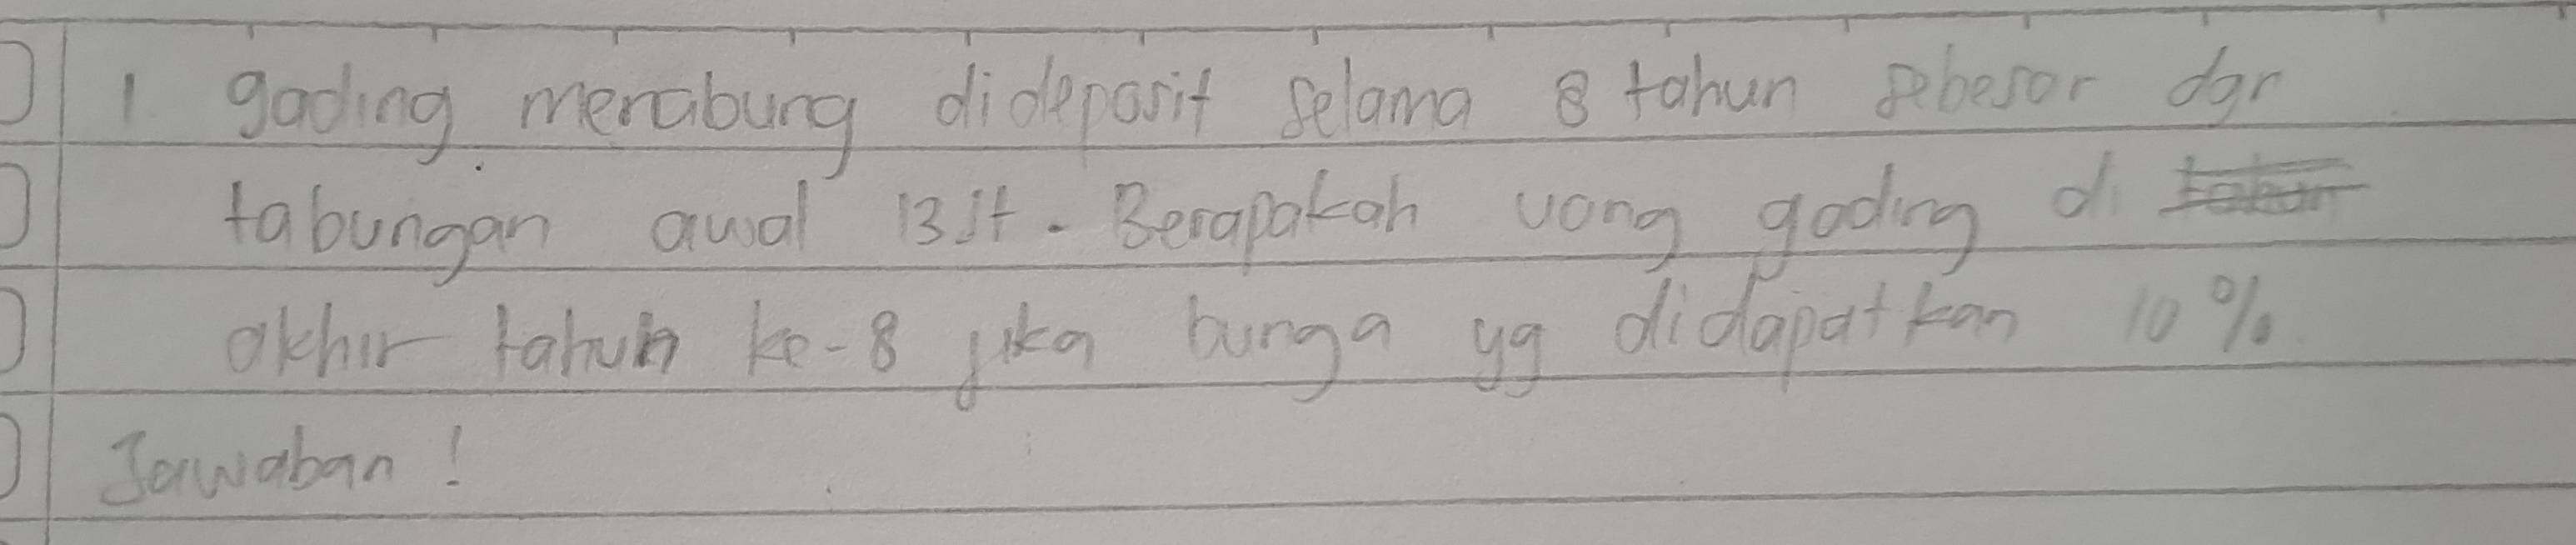 1. gading menabung di deposit selama 8 tahun sebesar dgn
tabungan awal 13 jt. Berapakah uang gading di
akhir tahun ke-8 jika bunga yg didapatkan 10%
Jawaban!